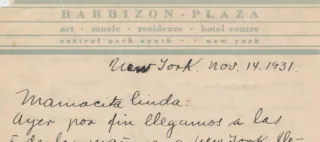 BARBIZON-PLAZA
art · music · residence · hotel centre
central park south · · new york
New York. Nov. 14. 1931.
Mamacita linda:
Ayer por fin llegamos a las
de la a New York